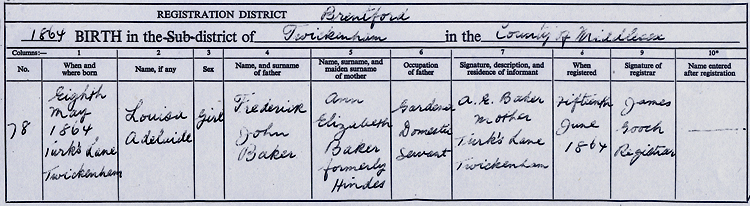 REGISTRATION DISTRICT Brentford
1864 BIRTH in the Sub-district of Twickenham in the County of Middlesex
Columns:- 1 2 3 4 5 6 7 8 9 10*
No. When and where born Name, if any Sex Name and surname of father Name, surname, and maiden surname of mother Occupation of father Signature, description, and residence of informant When registered Signature of registrar Name entered after registration
78 Eighth May 1864 Turk's Lane Twickenham Louisa Adelaide Girl Frederick John Baker Ann Elizabeth Baker formerly Hindes Gardener Domestic Servant A. E. Baker Mother Turk's Lane Twickenham Fifteenth June 1864 James Gooch Registrar